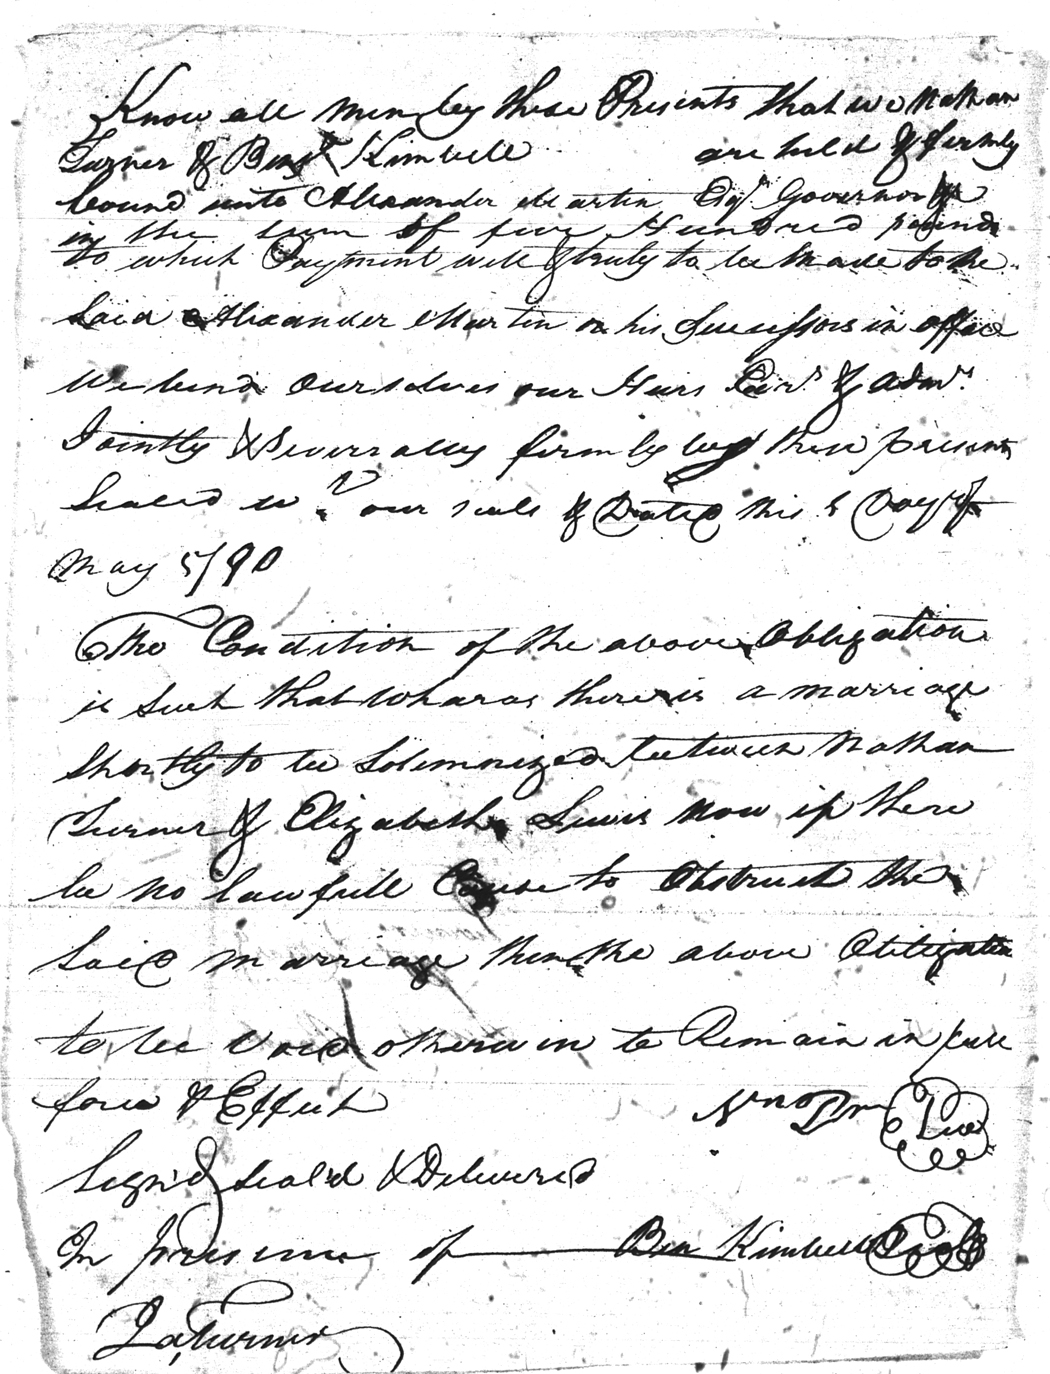 Know all men by these Presents that we Nathan
Turner & Benjn Kimbell are held & firmly
bound unto Alexander Martin Esqr Governor &c
in the sum of five Hundred pounds
to which Payment well & truly to be made to the
Said Alexander Martin or his Successors in office
We bind Ourselves our Heirs Exrs & Admrs
Jointly & Severally firmly by these presents
Sealed w our seals & Dated this 5 Day of
May 5/90
The Condition of the above Obligation
is Such that Wharas there is a marriage
Shortly to be Solemnized between Nathan
Turner & Elizabeth Lewis Now if there
be no lawfull Cause to Obstruct the
Said marriage then the above Obligation
to be Void otherwise to Remain in full
force & Effect
Sign'd Seal'd & Delivered
In presence of Ben Kimbell Seal
Turner